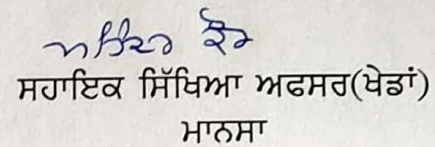 ਸਹਾਇਕ ਸਿੱਖਿਆ ਅਫਸਰ(ਖੇਡਾਂ)
ਮਾਨਸਾ